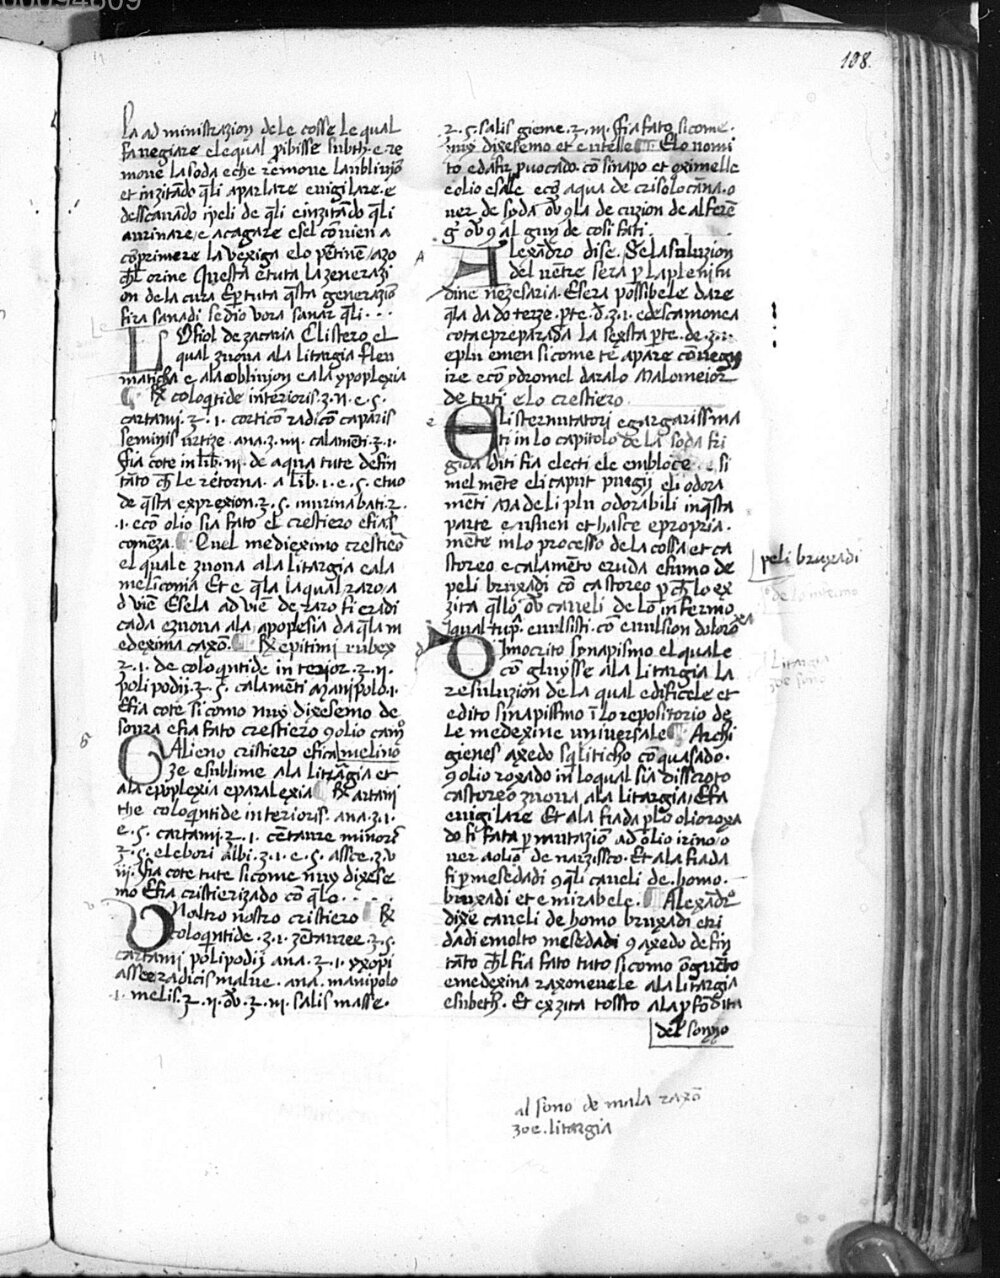 108.
La ad ministrazion de le cosse le qual
fa negiare el equal p̄ibisse subth. e re
move la soda eche remove laublinjō
et inzitādo q̄li aparlare evigilare. e
desscavado i peli de q̄li e inzitādo q̄li
aurinare e acagare esel cōvien a
cōprimere la vexiga elo pētinē azo
chl orine Questa e tuta la zenerazi
on de la cura E p̄ tuta q̄sta generaziō
sira sanadi se dio vora sanar q̄li. . .
LO fiol de zacraia Clistero el
qual zuova ala litargia fleu
maticha e ala oblinjon e ala ypoplexia
℞ coloq̄tide interioris .ʒ. ii. e. s.
cartami. ʒ. 1. corticō radicō caparis
seminis urtize. ana. ʒ. iii. calamēti. ʒ. 1.
fia cote in lib̄. iii. de aqua tute defin
tāto ch̄ le retorna. a lib̄. 1. e. s. et uo
de q̄sta exprexion. ʒ. s. murina bati. ʒ.
.1. ecō olio sia fato el crestiero efias
comēza. Quel mediexmo crestieō
el quale zuova ala litargia e ala
melicomia Et e q̄la la qual raro a
d vie Esela ad vie de raro si eradi
cada ezuova ala apopesia da q̄la m
edexima caxō. ℞ epitimi rubex
ʒ. 1. de coloq̄ntide in terior. ʒ. ii.
polipodij. ʒ. s. calamēti manipolo. 1.
Efia cote si como nuy dixesemo de
sovra efia fato crestiero 9olio cam̄
GAlieno cristiero efica melino
ze esublime ala litrāgia et
ala epoplexia eparalexia ℞ artani
the coloq̄ntide interioris. ana. ʒ. 1.
e. s. cartami. ʒ. 1. cētaure minorꝭ
ʒ. s. elebori albi. ʒ. 1. e. s. assce. ʒ. v
iij. fia cote tute si come nuy dixese
mo Efia cristierizado cō q̄lo. . . .
UNoltro nostro cristiero ℞
coloq̄ntide. ʒ. 1. zētauree. ʒ. s.
cartami polipodij ana. ʒ. 1. yxopi
assce radicis malve. ana. manipolo
.1. melis. ʒ. ii. ov̄. ʒ. iii. salis masse.
ʒ. s. salis gieme. ʒ. iii. fia fato si come.
nuy dixesemo et e utelle Elo vomi
to edafir p̄vocado. cō sinapo et oximelle
e olio esalle ecō aqua de crisolocāna. o
ver de soda ov̄ 9la de cuzion de alferē
g ov̄ 9 al guy de cosi fati.
ALexādro dise. Se la soluzion
del vētre sera p̄ la pleni tu
dine nezesaria. Esera possibele dare
q̄la da do terze. pte. d. ʒ. 1. edescamonea
cota e preparada la sexta pte. de. ʒ. 1.
e plu e men si come te apare cō negy
ire ecō ydromel daralo Malomeior
de tuti e lo crestiero.
ELi sternutatori e gargarissma
ti in lo capitolo de la soda fri
gida diti fia electi ele embloce. e si
mel mēte eli caput purgij eli odora
mēti Ma de li plu odorabili in q̄sta
parte e rusticu et hasce e propria.
mēte in lo processo de la cossa et ca
storeo e calamēto eruda efumo de
peli bruxadi cō castoreo p ch̄ lo ex
zita q̄llo. ov̄ caveli de lo in fermo
iqual tup̄. evulsisti. cō evulsion doloroxa
DImocrito synapismo el quale
cō gluysse ala litargia la
resuluzion de la qual edificele et
edito sinapissmo ī lo repositorio de
le medexine universale Archi
gienes axedo sq̄liticho cō quasado.
9olio roxado in lo qual sia disscroto
castoreo zuova ala litargia, Efa
evigilare Et ala fiada plo olio roxa
do si fata p̄ mutaziō ad olio irino o
ver a olio de narzissco. Et ala fiada
fi p̄ mesedadi 9q̄li caveli de. homo.
bruxadi et e mirabele. Alexādr
dixe caveli de homo bruxadi etri
dadi e molto mesedadi 9 axedo defin
tāto ch̄l fia fato tuto si como ōguēto
e medexina raxonevele ala litargia
e subeth. Et exzita tossto a la p̄fōdita
del sonno
peli bruxadi
de lo infermo
Litargia
zoe sono
al sono de mala raxō
zoe. litargia